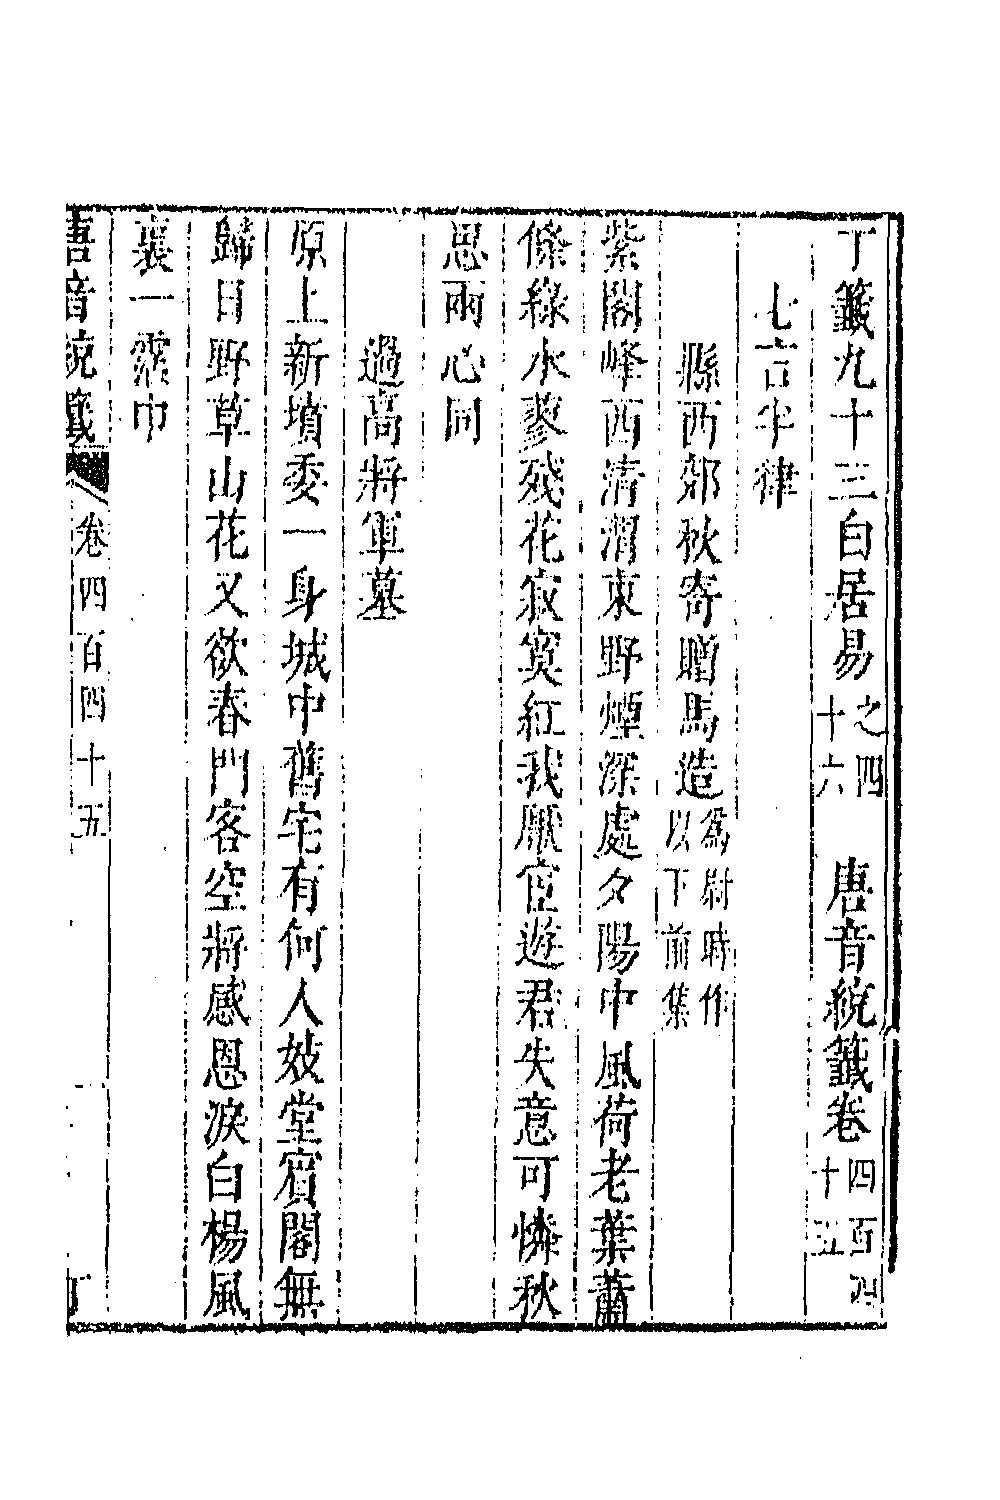 丁籤九十三白居易之四十六　唐音統籤卷四百四十五
七言半律
縣西郊秋寄贈馬造為尉時作以下前集
紫閣峰西清渭東野煙深處夕陽中風荷老葉蕭
條綠水蓼殘花寂寞紅我厭宦遊君失意可憐秋
思兩心同
過高將軍墓
原上新墳委一身城中舊宅有何人妓堂賓閣無
歸日野草山花又欲春門客空將感恩淚白楊風
裏一霑巾
唐音統籤　卷四百四十五